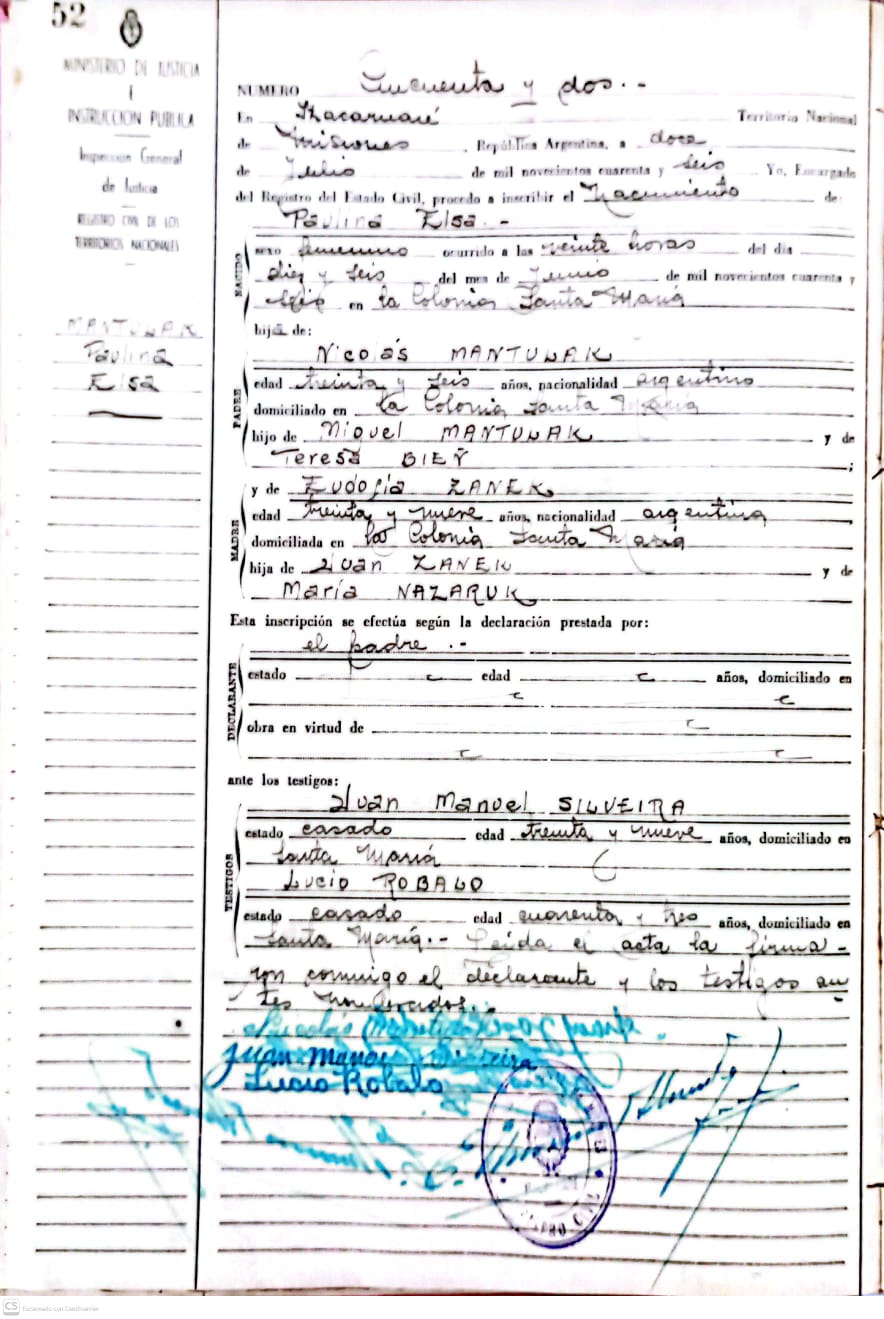 52
MINISTERIO DE JUSTICIA
E
INSTRUCCION PUBLICA
Inspección General
de Justicia
REGISTRO CIVIL DE LOS
TERRITORIOS NACIONALES
MANTULAK
Paulina
Elsa
NUMERO Cincuenta y dos.-
En Itacaruaré Territorio Nacional
de Misiones, República Argentina, a doce
de Julio de mil novecientos cuarenta y seis Yo, Encargado
del Registro del Estado Civil, procedo a inscribir el Nacimiento de:
Paulina Elsa.-
NACIDO
sexo femenino ocurrido a las veinte horas del día
diez y seis del mes de Junio de mil novecientos cuarenta y
seis en la Colonia Santa María
hija de:
Nicolás MANTULAK
PADRE
edad treinta y seis años, nacionalidad argentino
domiciliado en la Colonia Santa María
hijo de Miguel MANTULAK y de
Teresa BIEÑ;
MADRE
y de Eudofia ZANEK
edad treinta y nueve años, nacionalidad argentina
domiciliada en la Colonia Santa María
hija de Juan ZANEK y de
María NAZARUK
Esta inscripción se efectúa según la declaración prestada por:
el padre.-
DECLARANTE
estado edad años, domiciliado en
obra en virtud de
ante los testigos:
Juan Manuel SILVEIRA
TESTIGOS
estado casado edad treinta y nueve años, domiciliado en
Santa María
Lucio ROBALO
estado casado edad cuarenta y tres años, domiciliado en
Santa María.- Leída el acta la firma-
ron conmigo el declarante y los testigos an-
tes nombrados.
Nicolás
Juan Manuel Silveira
Lucio Robalo
CS Escaneado con CamScanner